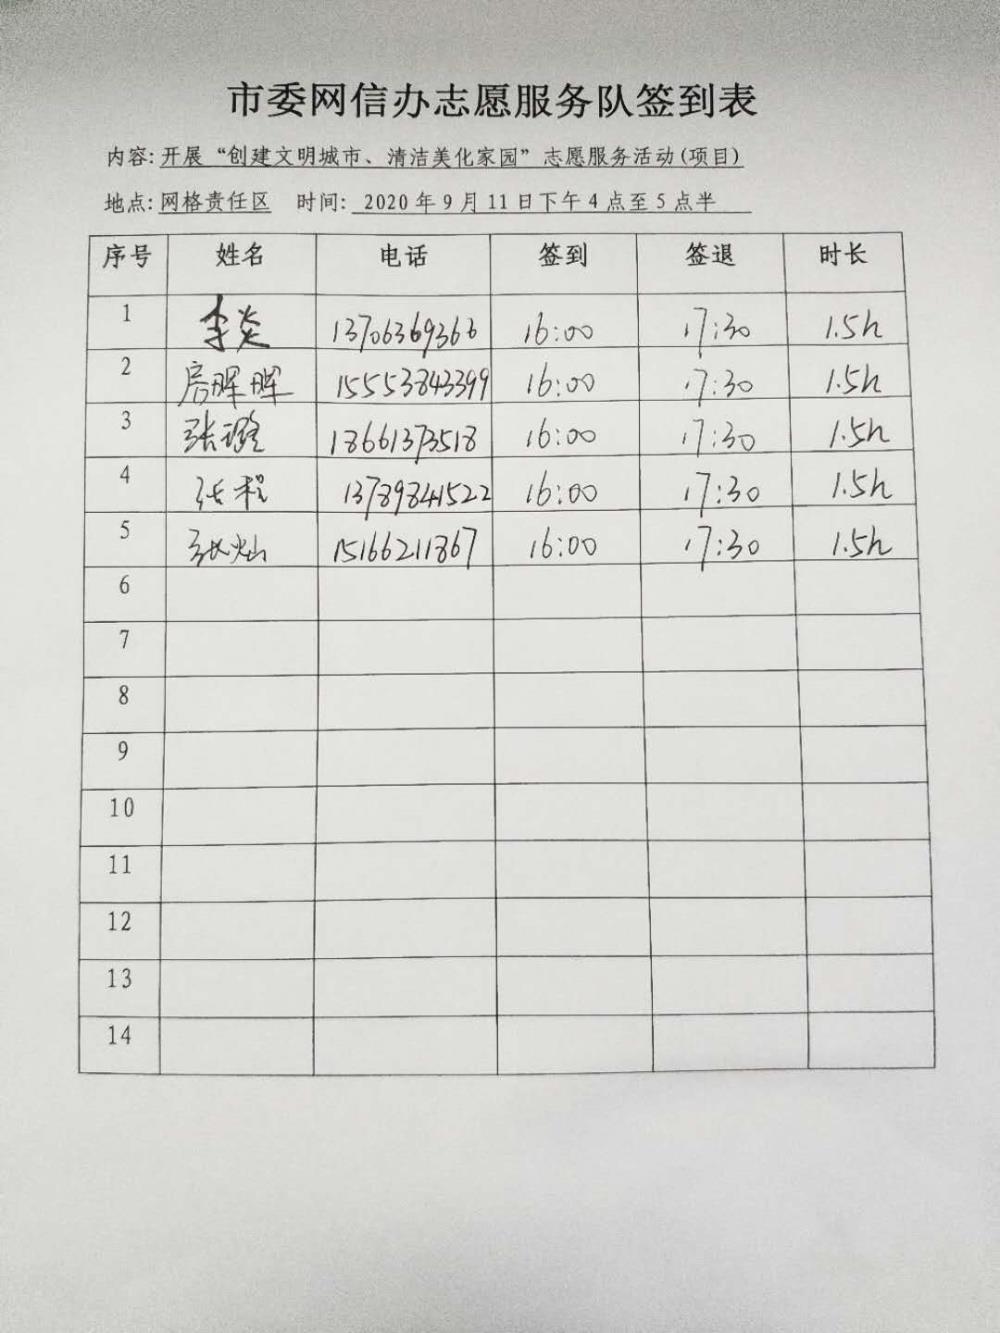 市委网信办志愿服务队签到表
内容:开展“创建文明城市、清洁美化家园”志愿服务活动(项目)
地点:网格责任区 时间: 2020年9月11日下午4点至5点半
序号 姓名 电话 签到 签退 时长
1 李炎 13706369366 16:00 17:30 1.5h
2 房晖晖 15553843399 16:00 17:30 1.5h
3 张璐 18661373518 16:00 17:30 1.5h
4 张程 13789841522 16:00 17:30 1.5h
5 张灿 15166211867 16:00 17:30 1.5h
6
7
8
9
10
11
12
13
14